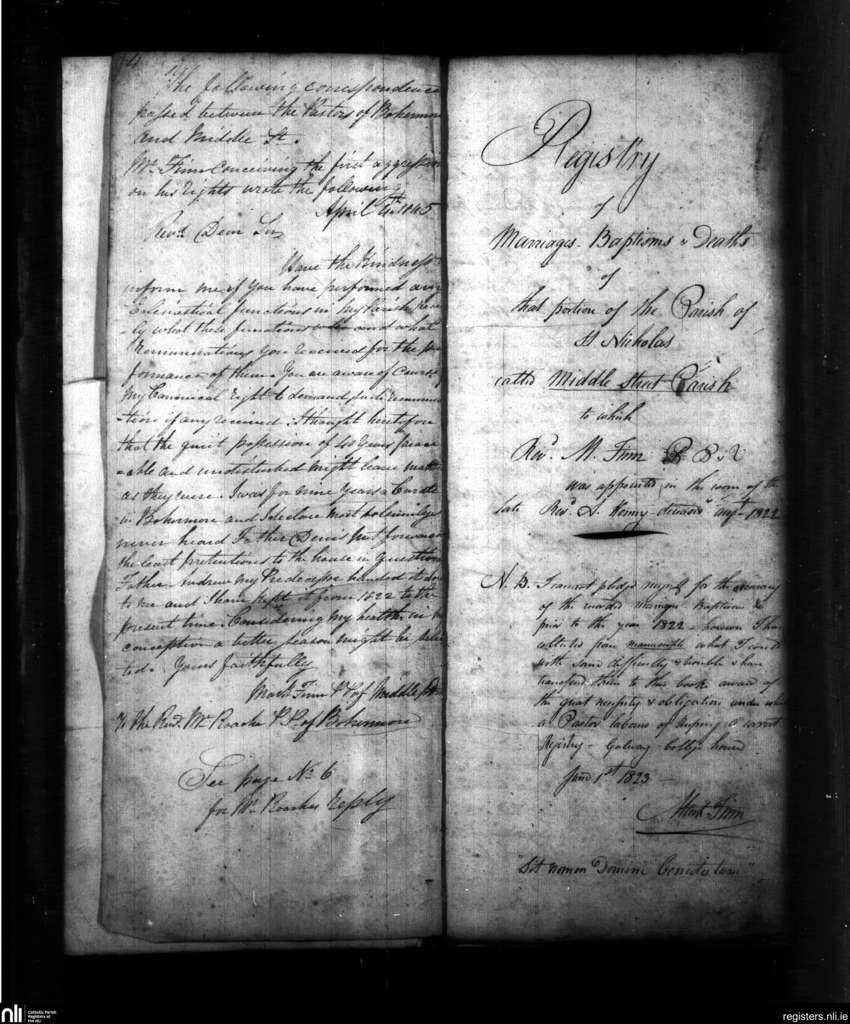 The following correspondence
passed between the Pastors of Bohermore
and Middle St.
Mr. Finn conceiving the first aggression
on his rights wrote the following
April 4th 1845
Revd. Dear Sir
Have the kindness to
inform me if you have performed any
Eclesiastical functions in my Parish
-ly what these functions were and what
Remunerations you received for the per
formance of them. You are aware of course of
my Canonical right to demand such remunera
-tion if any received. I thought heretofore
that the quiet possession of 40 years peace
-able and undisturbed might leave matters
as they were. I was for nine years a Curate
in Bohermore and I declare most solemnly I
never heard Father Denis put forward
the least pretentions to the house in question
Father Andrew my Predecessor handed it down
to me and I have kept it from 1822 to the
present time. Considering my health in
conception a better season might be selec
ted. Yours faithfully
Mark Finn P.P. of Middle St
To the Revd. Mr. Roache P.P. of Bohermore
See page No. 6
for Mr. Roaches reply
Registry
of
Marriages. Baptisms & Deaths
of
that portion of the Parish of
St Nicholas
called Middle Street Parish
to which
Revd. M. Finn
was appointed in the room of the
late Revd. A. deceased Augt 1822
N.B. I cannot pledge myself for the accuracy
of the recorded marriages Baptisms &c
prior to the year 1822 - however I have
collected from manuscripts what I could
with some difficulty & trouble & have
transferred them to this book aware of
the great necessity & obligation under which
a Pastor labours of keeping a correct
Registry - Galway College house
June 1st 1823 -
Mark Finn
"Sit nomen Domini benedictum"
nli
Catholic Parish
Registers at
the NLI
registers.nli.ie